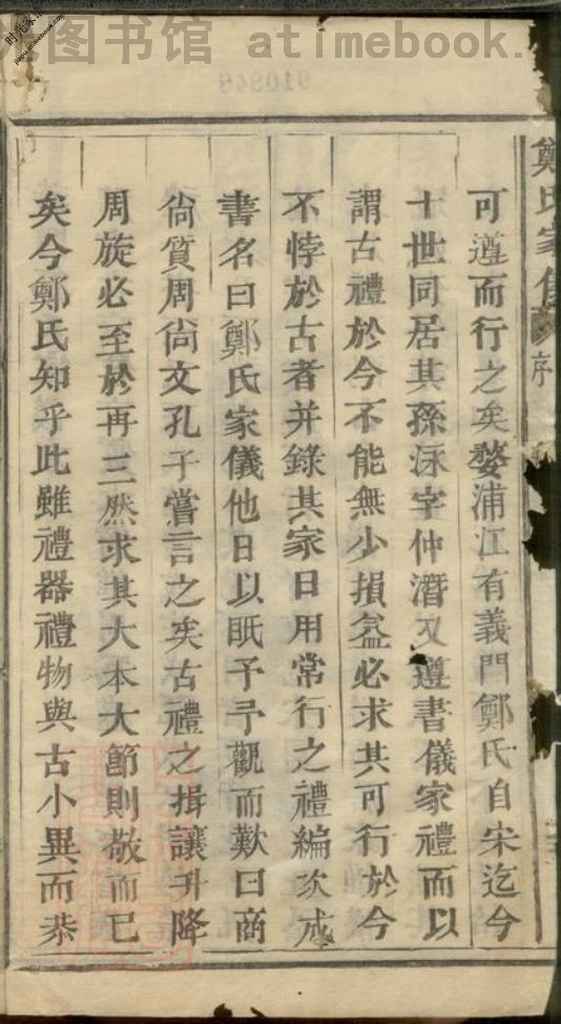 图书馆 atimebook.
鄭氏家儀
序
可遵而行之矣婺浦江有義門鄭氏自宋迄今
十世同居其孫泳字仲潛又遵書儀家禮而以
謂古禮於今不能無少損益必求其可行於今
不悖於古者并錄其家日用常行之禮編次成
書名曰鄭氏家儀他日以眎予予觀而歎曰商
尙質周尙文孔子嘗言之矣古禮之揖讓升降
周旋必至於再三然求其大本大節則敬而已
矣今鄭氏知乎此雖禮器禮物與古小異而恭